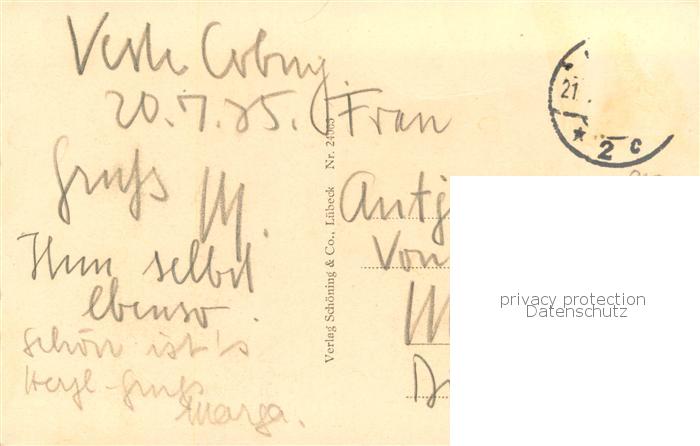 Veste Coburg,
20.7.35.
Gruß
M.
Ihnen selbst
ebenso.
Schön ist's
Herzl. Gruß
Marga.
Verlag Schöning & Co., Lübeck Nr. 24063
Frau
Antj
Von
21.
* 2 c
privacy protection
Datenschutz